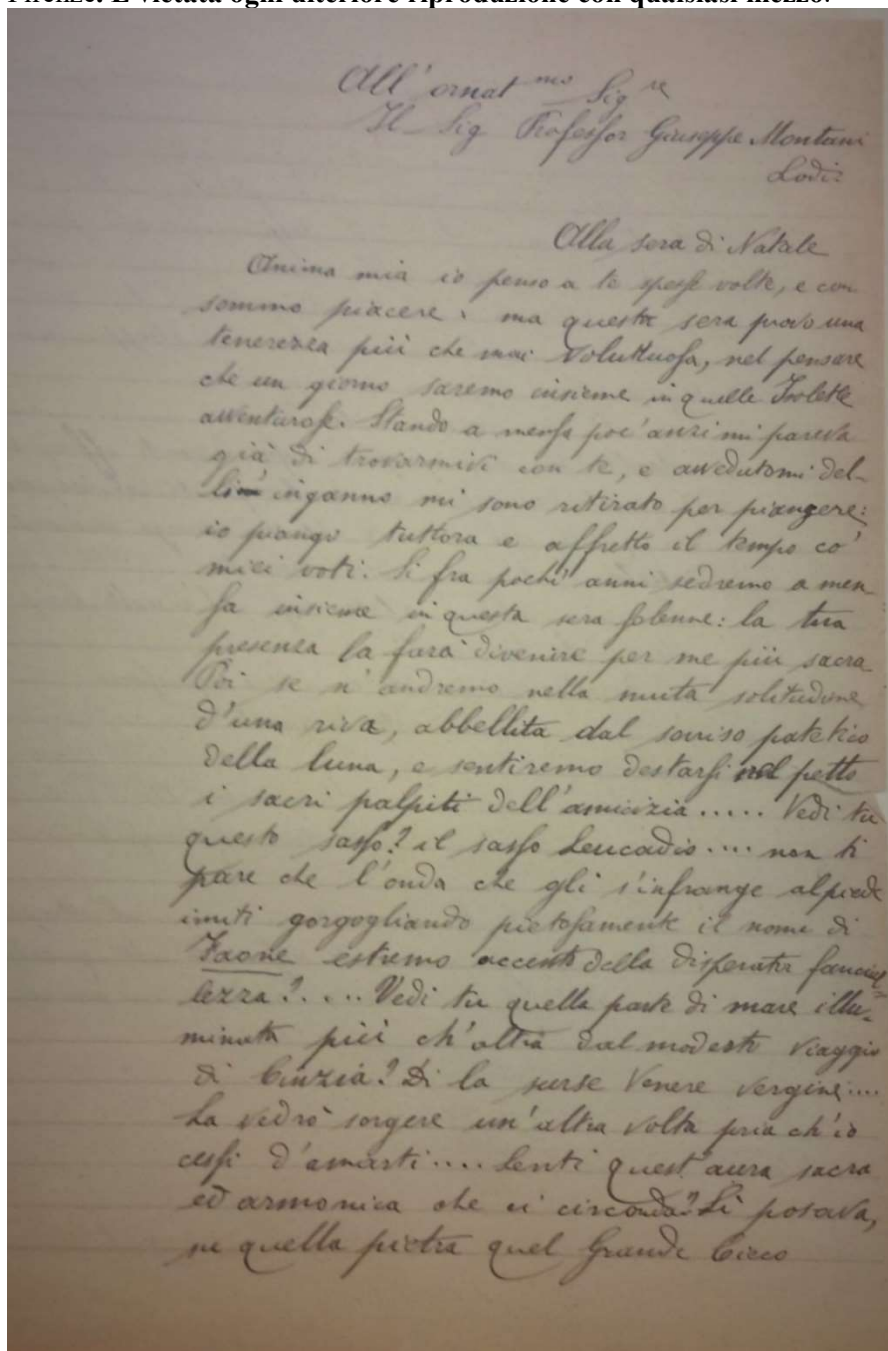 Firenze. È vietata ogni ulteriore riproduzione con qualsiasi mezzo.
All' ornat mo Sig re
Il Sig Professor Giuseppe Montani
Lodi
Alla sera di Natale
Anima mia io penso a te spesse volte, e con
sommo piacere; ma questa sera provo una
tenerezza più che mai voluttuosa, nel pensare
che un giorno saremo insieme in quelle Isolette
avventurose. Stando a mensa poc'anzi mi pareva
già di trovarmivi con te, e avvedutomi del-
l' inganno mi sono ritirato per piangere:
io piango tuttora e affretto il tempo co'
miei voti. Sì fra pochi anni sedremo a men
sa insieme in questa sera solenne: la tua
presenza la farà divenire per me più sacra
Poi se n' andremo nella muta solitudine
d'una riva, abbellita dal sorriso patetico
della luna, e sentiremo destarsi nel petto
i sacri palpiti dell'amicizia ..... Vedi tu
questo sasso? il sasso Leucadio .... non ti
pare che l'onda che gli s'infrange al piede
imiti gorgogliando pietosamente il nome di
Faone estremo accento della disperata fanciul=
lezza? .... Vedi tu quella parte di mare illu-
minata più ch'altra dal modesto viaggio
di Cinzia? Di la surse Venere vergine ....
La vedrò sorgere un'altra volta pria ch'io
cessi d'amarti .... Senti quest'aura sacra
ed armonica che ci circonda? Lì posava,
su quella pietra quel Grande Cieco